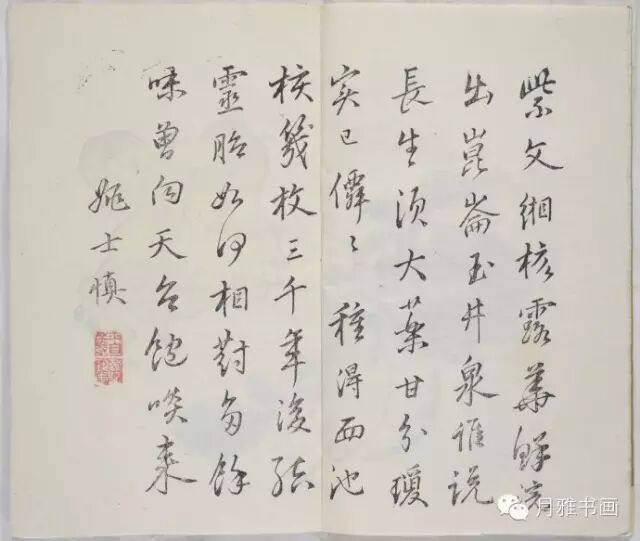 紫文緗核露華鮮流
出崑崙玉井泉誰說
長生須大藥甘分瓊
实已僊〻種得西池
核幾枚三千年後結
靈胎如何相對多餘
味曾向天台飽啖來
姚士慎
月雅书画